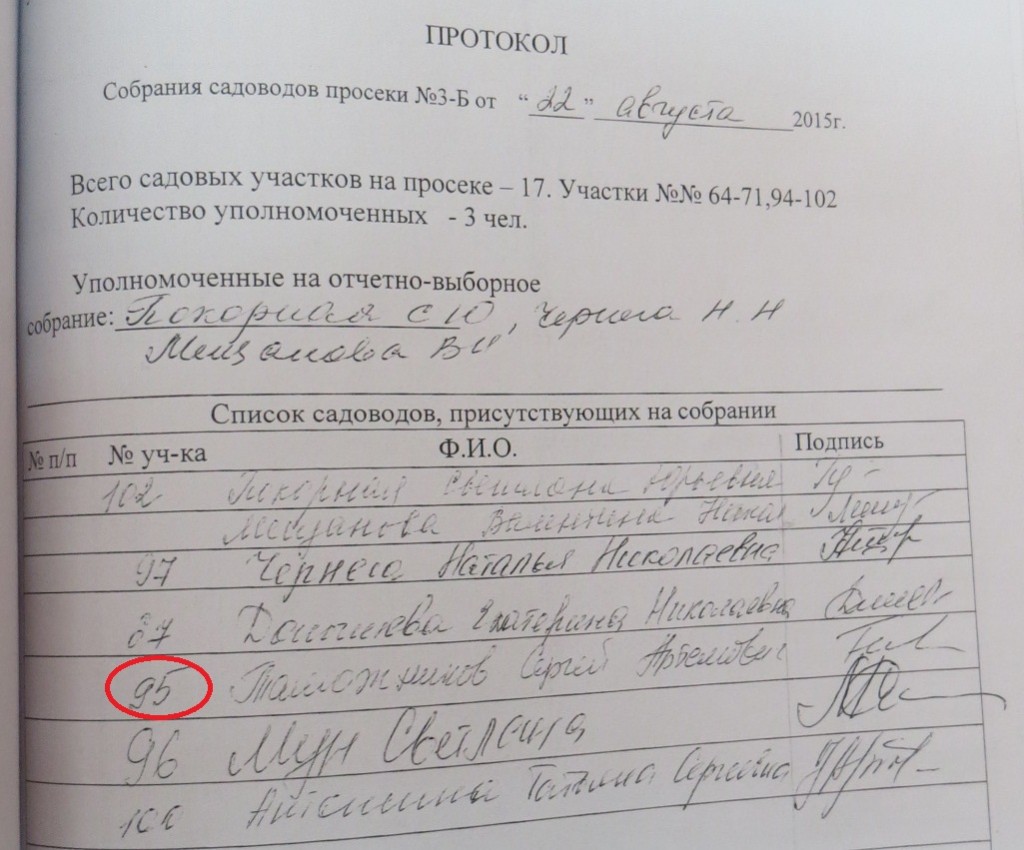 ПРОТОКОЛ
Собрания садоводов просеки №3-Б от "22" августа 2015г.
Всего садовых участков на просеке – 17. Участки №№ 64-71,94-102
Количество уполномоченных - 3 чел.
Уполномоченные на отчетно-выборное
собрание: Покорная С Ю, Чернега Н. Н
Мещанова В
Список садоводов, присутствующих на собрании
№ п/п № уч-ка Ф.И.О. Подпись
102 Покорная Светлана Юрьевна
Мещанова Валентина
97 Чернега Наталья Николаевна
67 Екатерина Николаевна
95 Таможников Сергей Артемович
96 Мун Светлана
100 Антонина Татьяна Сергеевна